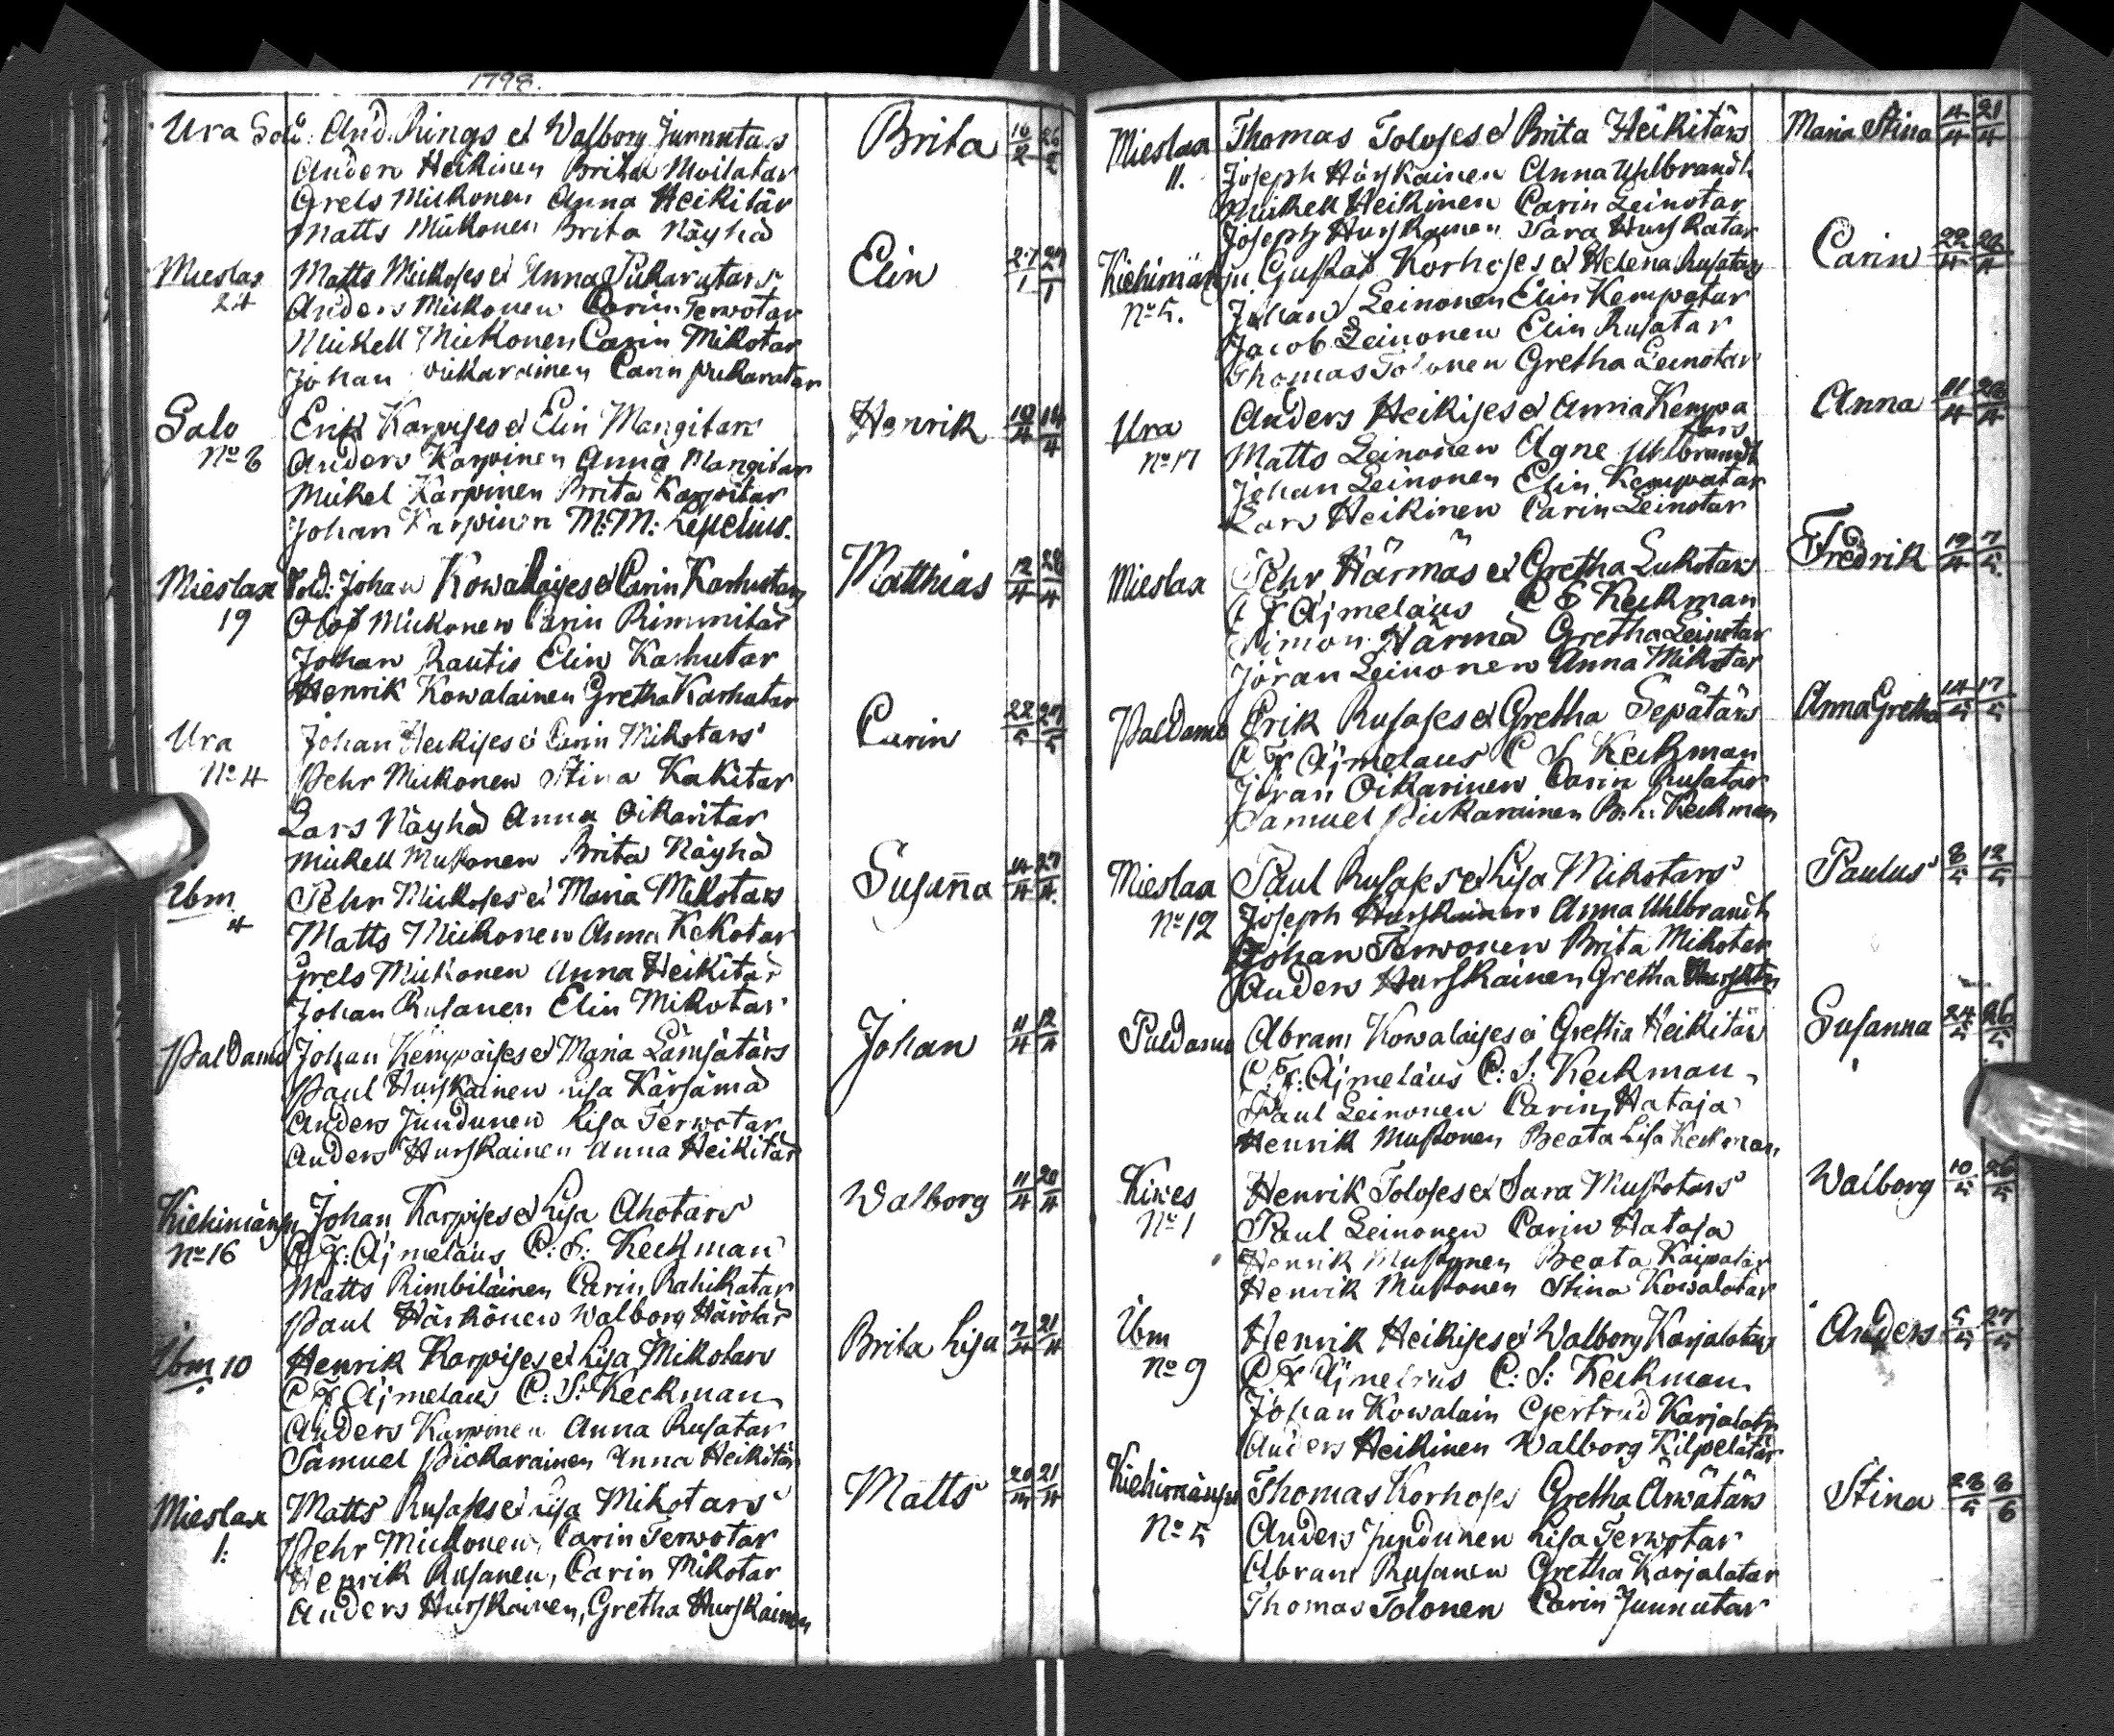 1798.
Ura Sold: And. Rings et Walborg Junnutars Brita 16/2 26/2
Anders Heikinen Brita Moilatar
Grels Mickonen Anna Heikitär
Matts Mickonen Brita Näyhä
Mieslax 24 Matts Mickoses et Anna Pikarutars Elin 27/1 29/1
Anders Mickonen Carin Terwotar
Mickell Mickonen Carin Mikotar
Johan Carin
Salo No 6 Erik Karpises et Elin Mangitars Henrik 10/4 14/4
Anders Karpinen Anna Mangitar
Mickel Karpinen Brita Karpitar
Johan Karpinen M:M: Lepelius.
Mieslax 19 Sold: Johan Kowalaises et Carin Karhutars Matthias 12/4 28/4
Olof Mickonen Carin Rimmitär
Johan Rautis Elin Karhutar
Henrik Kowalainen Gretha Karhutar
Ura No 4 Johan Heikises et Carin Mikotars Carin 22/5 27/5
Pehr Mickonen Stina Kakitar
Lars Näyhä Anna Oikaritar
Mickell Mustonen Brita Näyhä
Ibm 4 Pehr Mickoses et Maria Mikotars Susanna 14/4 27/4
Matts Mickonen Anna Kekotar
Grels Mickonen Anna Heikitär
Johan Rusanen Elin Mikotar
Paldamo Johan Kempaises et Maria Lämsätärs Johan 11/4 12/4
Paul Hurskainen Lisa Kärsämä
Anders Jundunen Lisa Terwotar
Anders Hurskainen Anna Heikitär
Kiehimänsu No 16 Johan Karpises et Lisa Ahotars Walborg 11/4 20/4
C F: Ajmeläus C: S: Keckman
Matts Rimbiläinen Carin Rahikatar
Paul Härkönen Walborg Härötär
Ibm 10 Henrik Karpises et Lisa Mikotars Brita Lisa 7/4 21/4
C F Ajmelaus C: S: Keckman
Anders Karpinen Anna Rusatar
Samuel Pickarainen Anna Heikitär
Mieslax 1: Matts Rusases et Lisa Mikotars Matts 21/4
Pehr Mickonen, Carin Terwotar
Henrik Rusanen, Carin Mikotar
Anders Hurskainen, Gretha Hurskainen
Mieslax 11. Thomas Toloses et Brita Heikitärs Maria Stina 4/4 21/4
Joseph Hurskainen Anna Uhlbrandt
Mickell Heikinen Carin Leinotar
Joseph Hurskainen Sara Hurskatar
Kiehimänsu No 5. Gustaf Korhoses et Helena Rusatars Carin 22/4 26/4
Johan Leinonen Elin Kempatar
Jacob Leinonen Elin Rusatar
Thomas Tolonen Gretha Leinotar
Ura No 17 Anders Heikises et Anna Kempatars Anna 11/4 28/4
Matts Leinonen Agne Uhlbrandt
Johan Leinonen Elin Kempatar
Lars Heikinen Carin Leinotar
Mieslax Pehr Härmäs et Gretha Lukotars Fredrik 19/4 7/5
C F Ajmelaus C S Keckman
Simon Härmä Gretha Leinotar
Jöran Leinonen Anna Mikotar
Paldamo Erik Rusases et Gretha Sepätärs Anna Gretha 14/5 17/5
C F Ajmelaus C S Keckman
Jöran Oikarinen Carin Rusatar
Samuel Pickarainen B.L. Keckman
Mieslax No 12 Paul Rusases et Lisa Mikotars Paulus 8/5 12/5
Joseph Hurskainen Anna Uhlbrandt
Johan Terwonen Brita Mikotar
Anders Hurskainen Gretha
Paldamo Abram Kowalaises et Gretha Heikitärs Susanna 24/5 26/5
C: F: Ajmeläus C: S: Keckman
Paul Leinonen Carin Hataja
Henrik Mustonen Beata Lisa Keckman
Kiwes No 1 Henrik Toloses et Sara Mustotars Walborg 10/5 26/5
Paul Leinonen Carin Hataja
Henrik Mustonen Beata Kaipatar
Henrik Mustonen Stina Kowalatar
Ibm No 9 Henrik Heikises et Walborg Karjalatars Anders 5/5 27/5
C F Ajmelaus C: S: Keckman
Johan Kowalain Gertrud Karjalatr
Anders Heikinen Walborg Kilpelatär
Kiehimänsu No 5 Thomas Korhoses Gretha Arwätärs Stina 28/5 8/6
Anders Jundunen Lisa Terwotar
Abram Rusanen Gretha Karjalatar
Thomas Tolonen Carin Junnutar